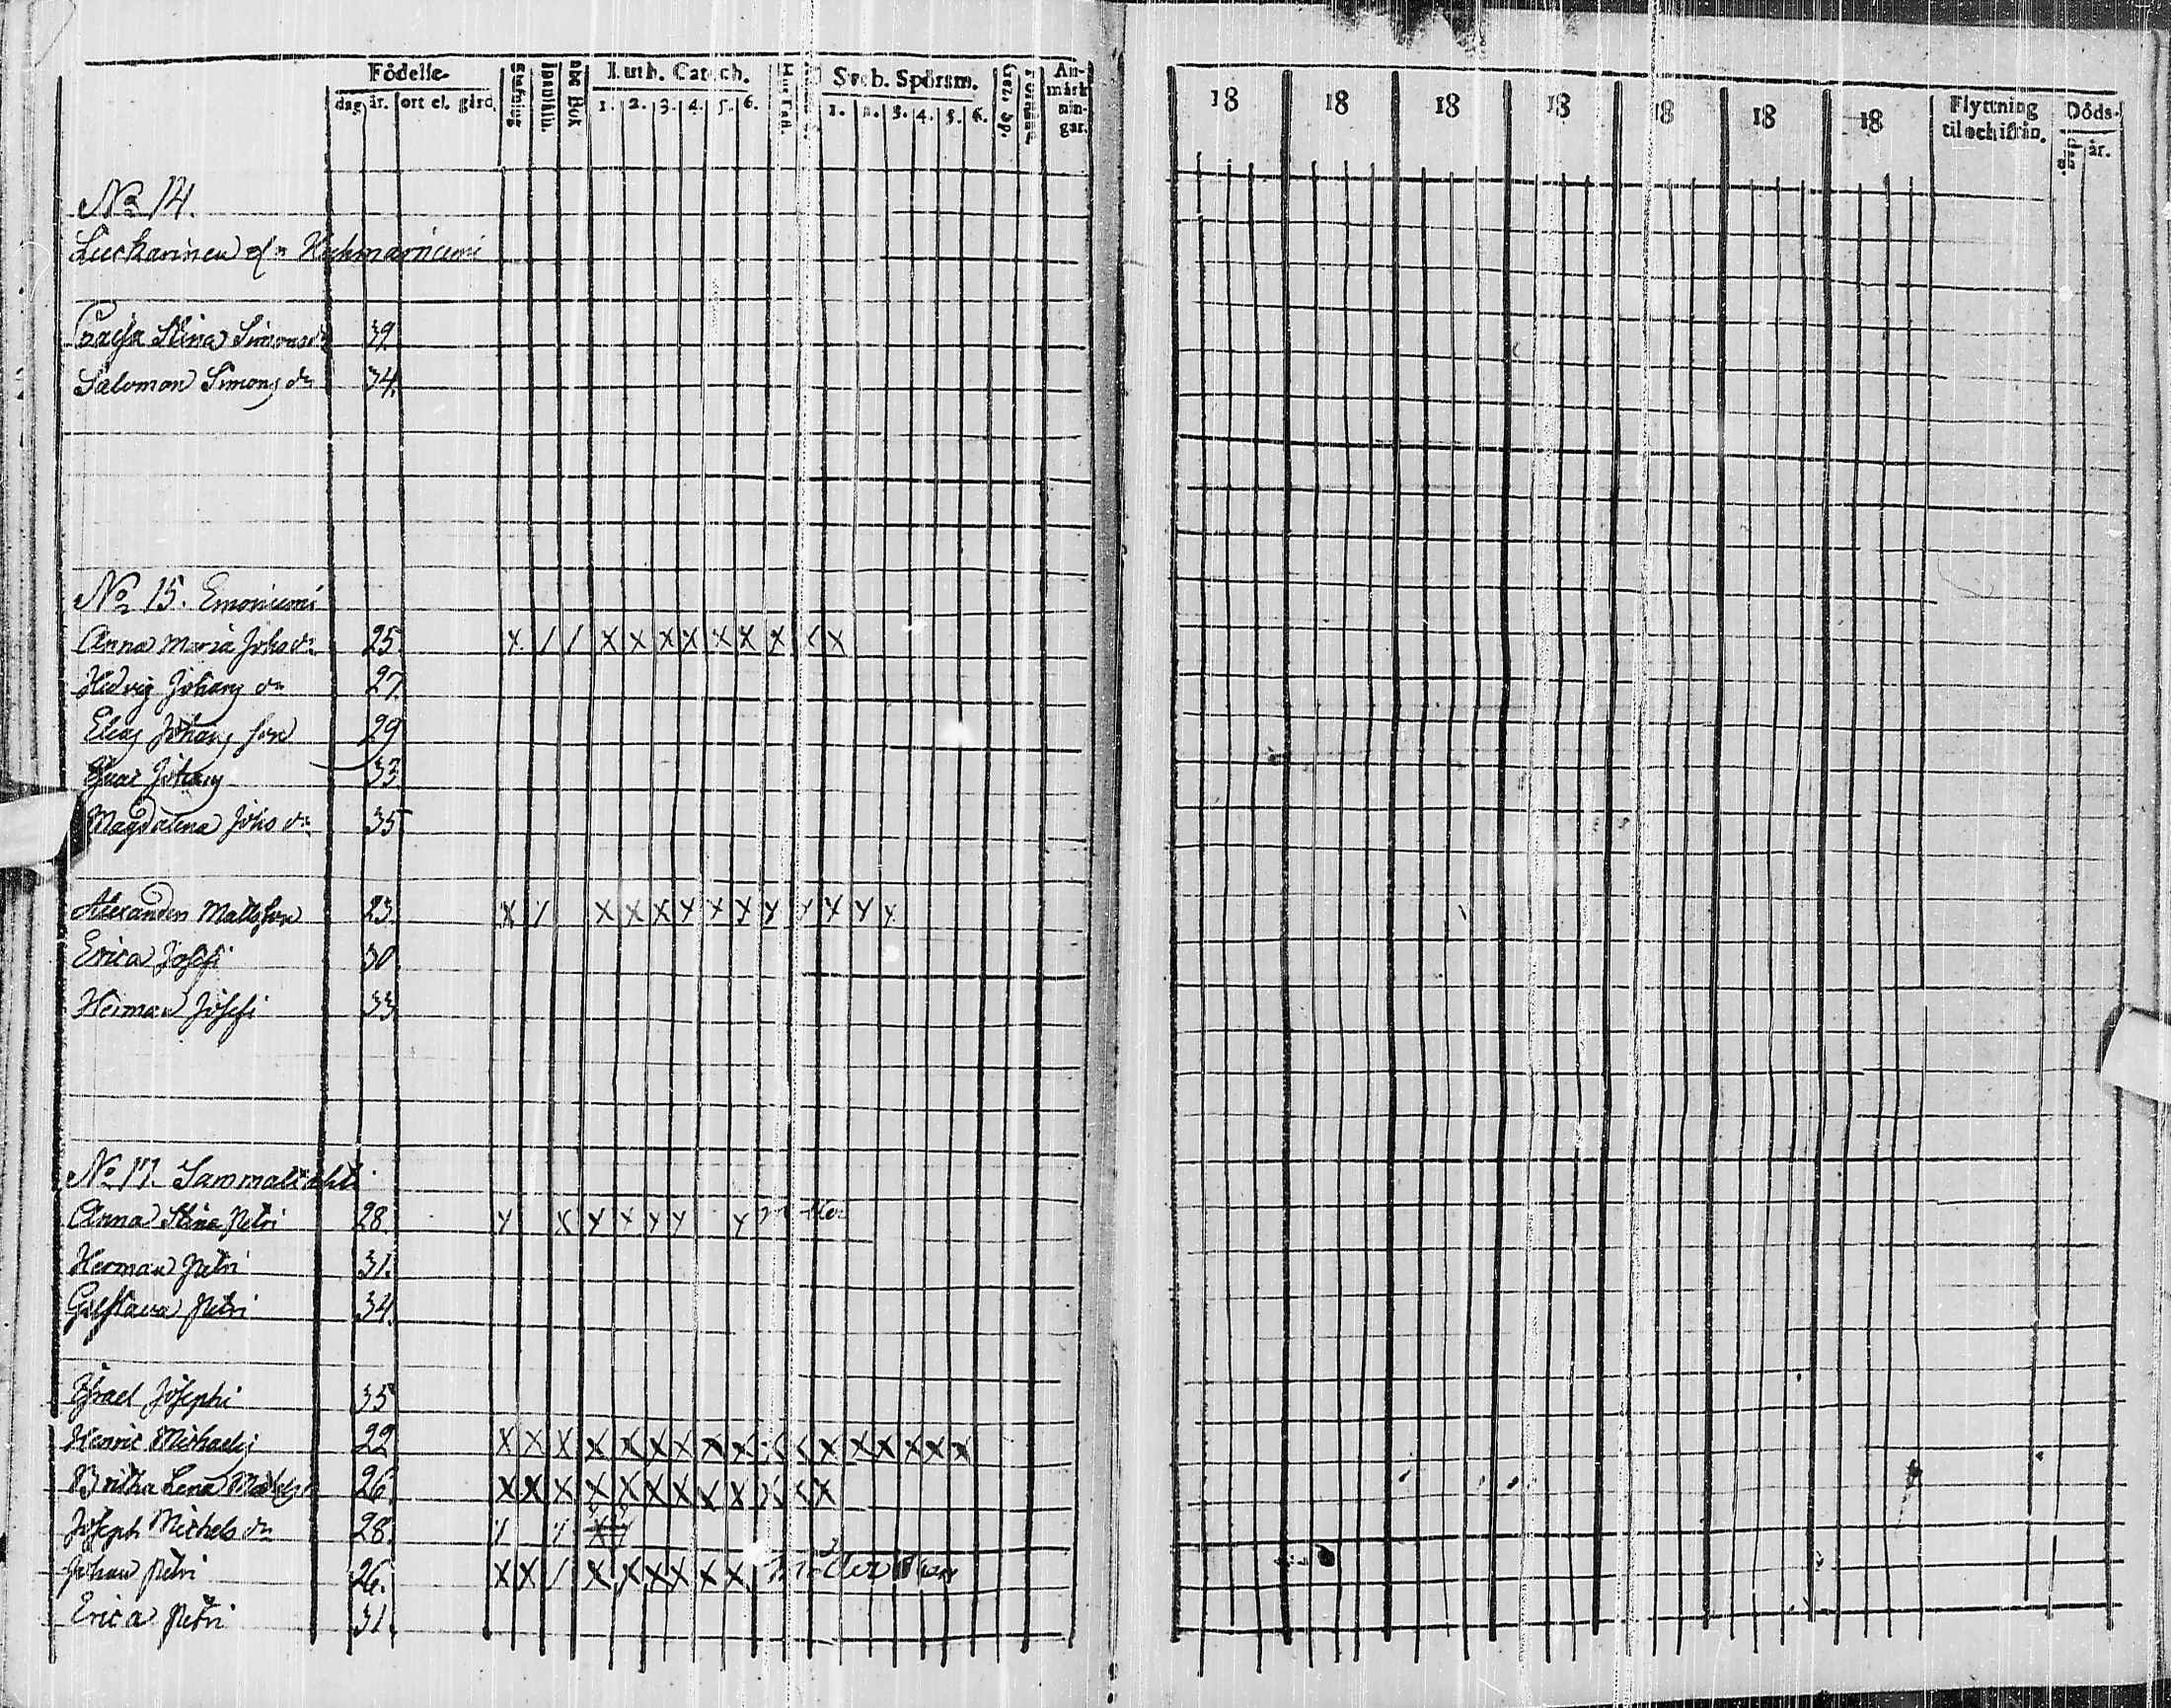 Födelse-
dag. år. ort el. gård.
Stafning
Innanläsn.
Abc Bok
Luth. Catech.
1. 2. 3. 4. 5. 6.
Sveb. Spörsm.
1. 2. 3. 4. 5. 6.
An-
märk
nin-
gar.
18 18 18 18 18 18 18
Flyttning
til och ifrån.
Döds-
dag år.
No 14.
Stina Simonsdr 39.
Salomon Simons dr 34.
No 15. Emoniemi
Anna Maria Johsdr 25. x / / x x x x x x x x x
Hedvig Johans dr 27.
Elias Johans son 29
Johans 33.
Magdalena Johs dr 35
Alexander Matsson 23. x / x x x x x x x x x x x
Erica Josefi 30.
Herman Josefi 33
No 17. Sammalilahti
Anna Stina Petri 28. x x x x x x x
Herman Petri 31.
Gustava Petri 34.
Israel Josephi 35
Henric Michaelis 22 x x x x x x x x x x x x x x x x x
Britha Lena 26. x x x x x x x x x x x x
Joseph Michels dr 28. / / x /
Johan Petri 26. x x / x x x x x x
Erica Petri 31.